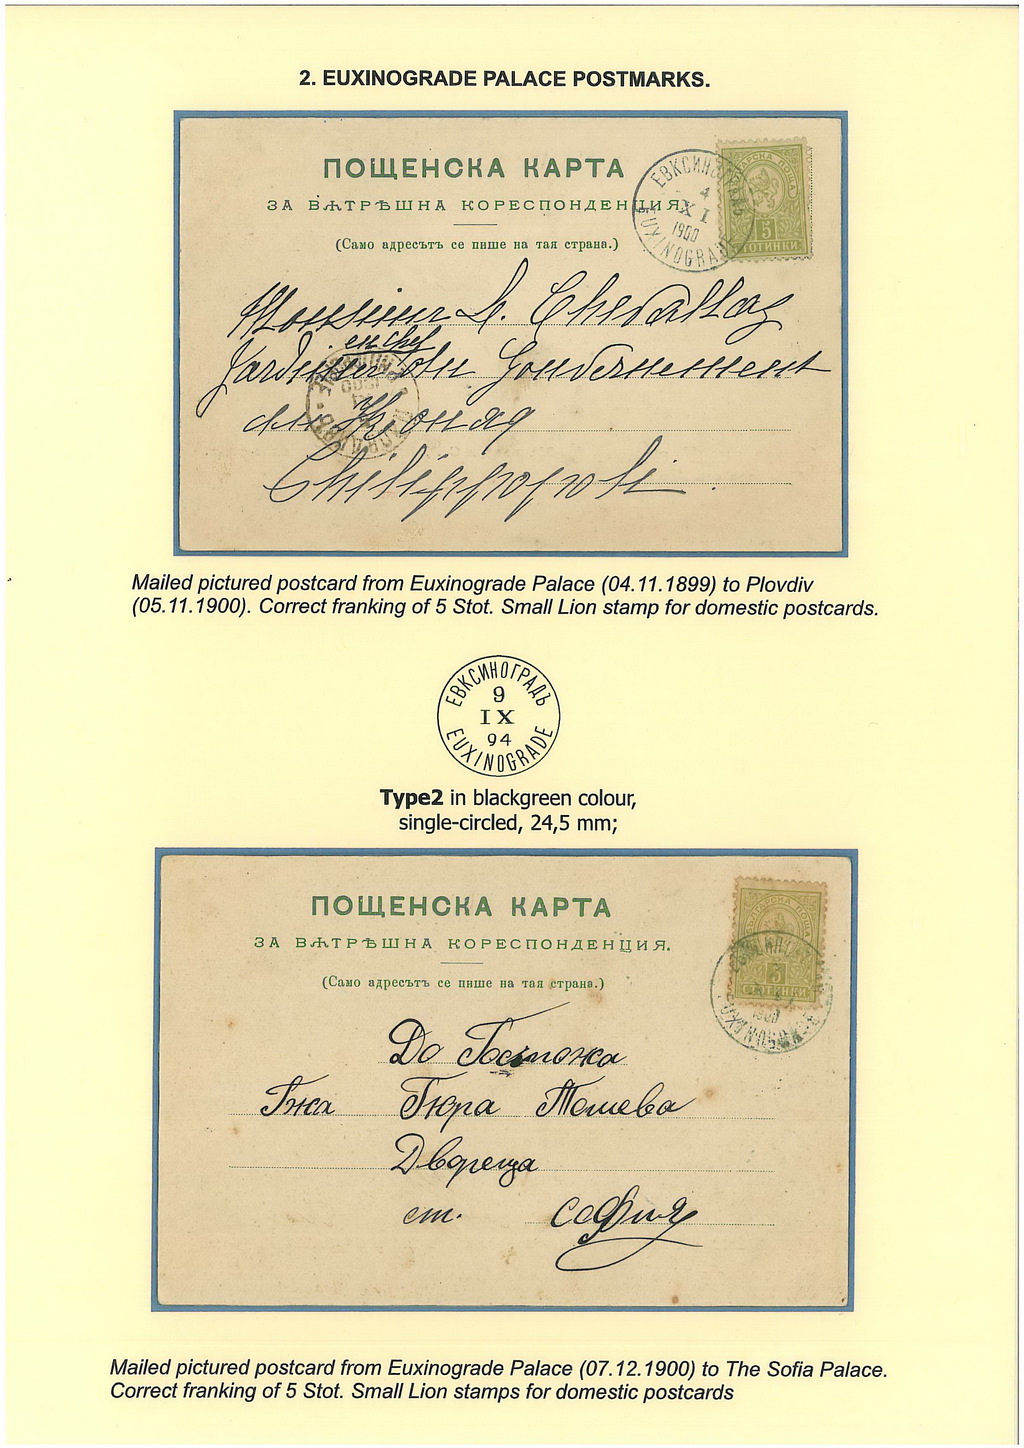 2. EUXINOGRADE PALACE POSTMARKS.
ПОЩЕНСКА КАРТА
ЗА ВѪТРѢШНА КОРЕСПОНДЕНЦИЯ.
(Само адресътъ се пише на тая страна.)
4
XI
1900
EUXINOGRADE
5
СТОТИНКИ
Monsieur L. Chevallaz
en chef
Jardinier du Gouvernement
du Konaq
Philippopoli.
Mailed pictured postcard from Euxinograde Palace (04.11.1899) to Plovdiv
(05.11.1900). Correct franking of 5 Stot. Small Lion stamp for domestic postcards.
ЕВКСИНОГРАДЪ
9
IX
94
EUXINOGRADE
Type2 in blackgreen colour,
single-circled, 24,5 mm;
ПОЩЕНСКА КАРТА
ЗА ВѪТРѢШНА КОРЕСПОНДЕНЦИЯ.
(Само адресътъ се пише на тая страна.)
БЪЛГАРСКА ПОЩА
5
СТОТИНКИ
До Госпожа
Гжа Гюра Тошева
Двореца
ст. София
Mailed pictured postcard from Euxinograde Palace (07.12.1900) to The Sofia Palace.
Correct franking of 5 Stot. Small Lion stamps for domestic postcards